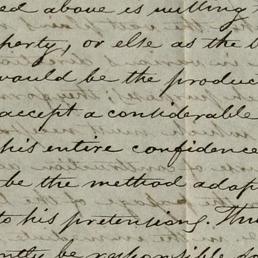 ed above is willing
perty, or else as the b
would be the produc
accept a considerable
his entire confidence
be the method adap
to his pretentions. Thu
ntly be responsible fo